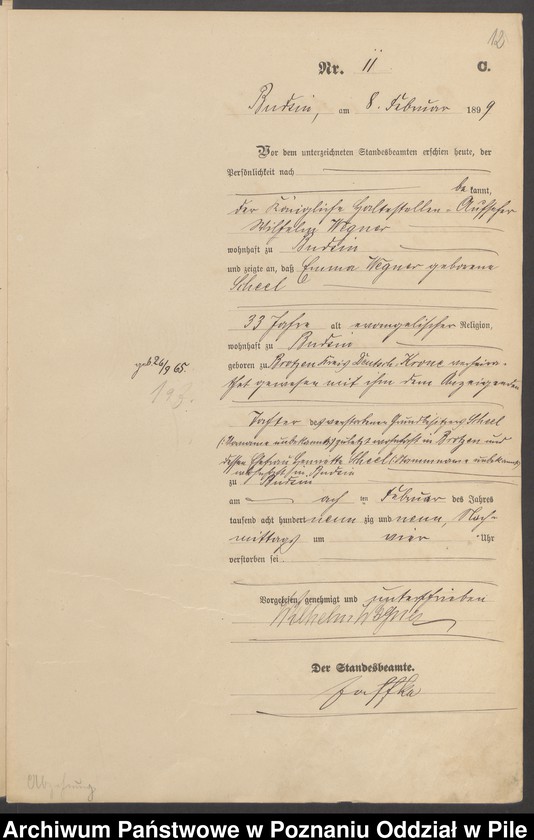 12
Nr. 11 C.
Budsin, am 8. Februar 1899
Vor dem unterzeichneten Standesbeamten erschien heute, der
Persönlichkeit nach
be kannt,
der Königliche Haltestellen-Aufseher
Wilhelm Wegner
wohnhaft zu Budsin
und zeigte an, daß Emma Wegner geborene
Scheel
33 Jahre alt evangelischer Religion,
wohnhaft zu Budsin
geb. 26/9 65.
geboren zu Brotzen Kreis Deutsch Krone verheira-
thet gewesen mit ihm dem Anzeigenden
Tochter des verstorbenen Grundbesitzers Scheel
(Vorname unbekannt) zuletzt wohnhaft in Brotzen und
dessen Ehefrau Henriette Scheel (Stammname unbekannt)
wohnhaft in Budsin
zu Budsin
am acht ten Februar des Jahres
tausend acht hundert neun zig und neun, Nach-
mittags um vier Uhr
verstorben sei
Vorgelesen, genehmigt und unterschrieben
Wilhelm Wegner
Der Standesbeamte.
Archiwum Państwowe w Poznaniu Oddział w Pile